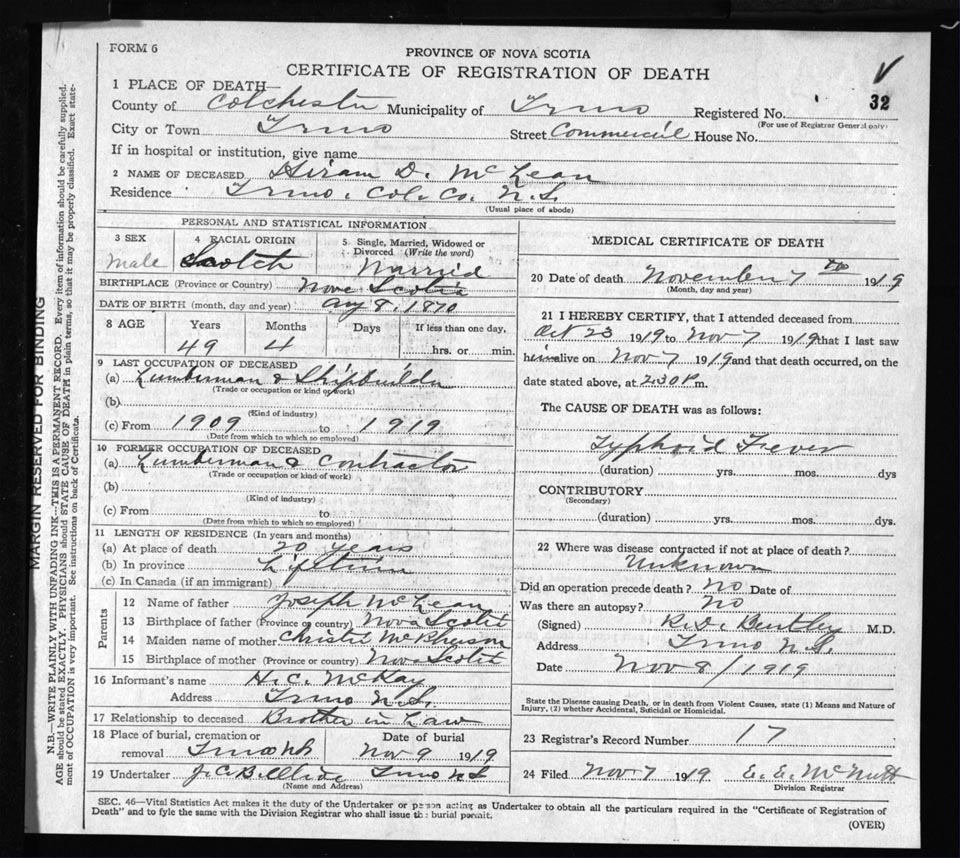 FORM 6
PROVINCE OF NOVA SCOTIA
CERTIFICATE OF REGISTRATION OF DEATH
32
1 PLACE OF DEATH—
County of Colchester Municipality of Truro Registered No.
(For use of Registrar General only)
City or Town Truro Street Commercial House No.
If in hospital or institution, give name
2 NAME OF DECEASED Hiram D. McLean
Residence Truro, Col. Co. N.S.
(Usual place of abode)
PERSONAL AND STATISTICAL INFORMATION
3 SEX 4 RACIAL ORIGIN 5 Single, Married, Widowed or Divorced (Write the word)
Male Scotch Married
BIRTHPLACE (Province or Country) Nova Scotia
DATE OF BIRTH (month, day and year) Aug 8, 1870
8 AGE Years Months Days If less than one day,
49 4 hrs. or min.
9 LAST OCCUPATION OF DECEASED
(a) Lumberman & Shipbuilder
(Trade or occupation or kind of work)
(b)
(Kind of industry)
(c) From 1909 to 1919
(Date from which to which so employed)
10 FORMER OCCUPATION OF DECEASED
(a) Lumberman & Contractor
(Trade or occupation or kind of work)
(b)
(Kind of industry)
(c) From to
(Date from which to which so employed)
11 LENGTH OF RESIDENCE (In years and months)
(a) At place of death 20 years
(b) In province Lifetime
(c) In Canada (if an immigrant)
Parents
12 Name of father Joseph McLean
13 Birthplace of father (Province or country) Nova Scotia
14 Maiden name of mother McPherson
15 Birthplace of mother (Province or country) Nova Scotia
16 Informant's name H.C. McKay
Address Truro N.S.
17 Relationship to deceased Brother in Law
18 Place of burial, cremation or removal Truro N.S. Date of burial Nov 9 1919
19 Undertaker Truro N S
(Name and Address)
MEDICAL CERTIFICATE OF DEATH
20 Date of death November 7 1919
(Month, day and year)
21 I HEREBY CERTIFY, that I attended deceased from
Oct 23 1919 to Nov 7 1919 that I last saw
him alive on Nov 7 1919 and that death occurred, on the
date stated above, at 2.30 P m.
The CAUSE OF DEATH was as follows:
Typhoid Fever
(duration) yrs. mos. dys
CONTRIBUTORY
(Secondary)
(duration) yrs. mos. dys.
22 Where was disease contracted if not at place of death?
Unknown
Did an operation precede death? No Date of
Was there an autopsy? No
(Signed) R.D. Bentley M.D.
Address Truro N.S.
Date Nov 8/1919
State the Disease causing Death, or in death from Violent Causes, state (1) Means and Nature of
Injury, (2) whether Accidental, Suicidal or Homicidal.
23 Registrar's Record Number 17
24 Filed Nov 7 1919 E. E. McNutt
Division Registrar
SEC. 46—Vital Statistics Act makes it the duty of the Undertaker or person acting as Undertaker to obtain all the particulars required in the "Certificate of Registration of
Death" and to fyle the same with the Division Registrar who shall issue the burial permit.
(OVER)
MARGIN RESERVED FOR BINDING
N.B.—WRITE PLAINLY WITH UNFADING INK—THIS IS A PERMANENT RECORD. Every item of information should be carefully supplied.
AGE should be stated EXACTLY. PHYSICIANS should STATE CAUSE OF DEATH in plain terms, so that it may be properly classified. Exact state-
ment of OCCUPATION is very important. See instructions on back of Certificate.